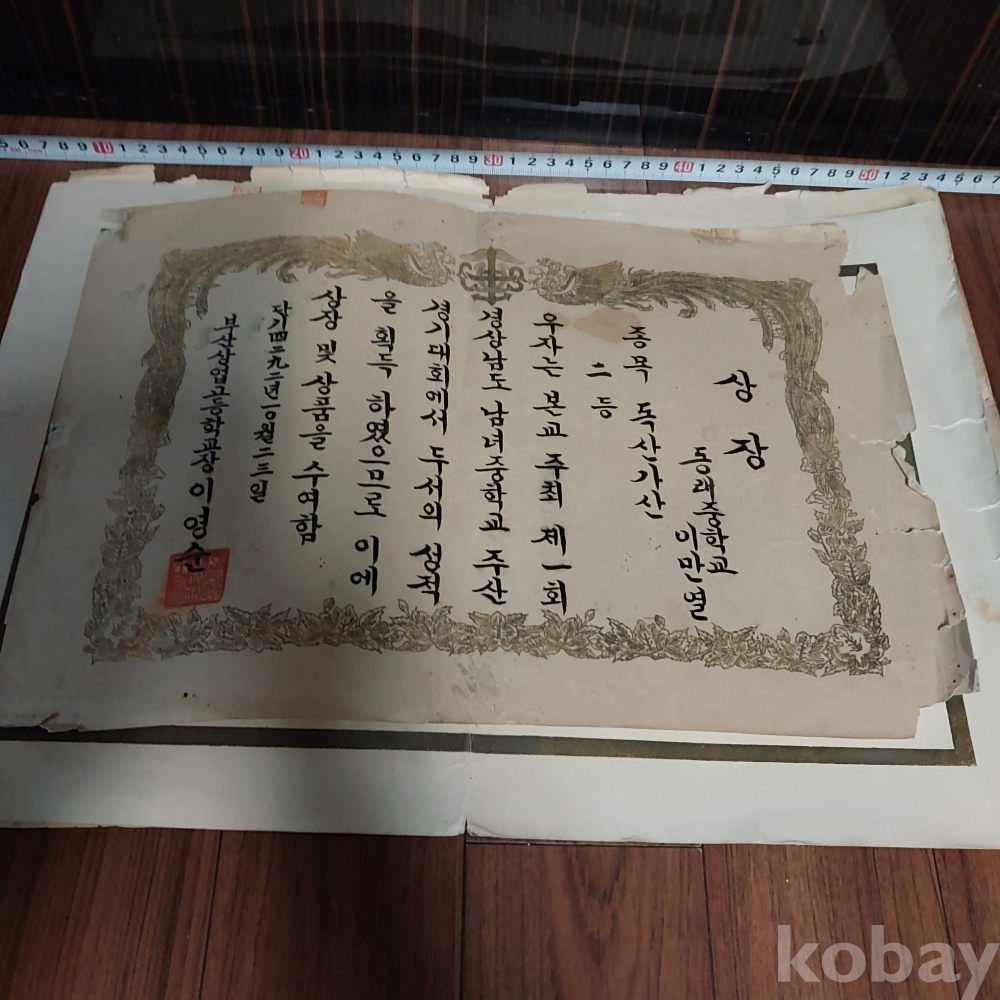 상장
동래중학교
이만열
종목 독산가산
二등
우자는 본교 주최 제一회
경상남도 남녀중학교 주산
경기대회에서 두서의 성적
을 획득 하였으므로 이에
상장 및 상품을 수여함
단기四二九二년 一○월 二三일
부산상업고등학교장 이영순
5 6 7 8 9 10 1 2 3 4 5 6 7 8 9 20 1 2 3 4 5 6 7 8 9 30 1 2 3 4 5 6 7 8 9 40 1 2 3 4 5 6 7 8 9 50 1 2 3 4 5 6 7
kobay